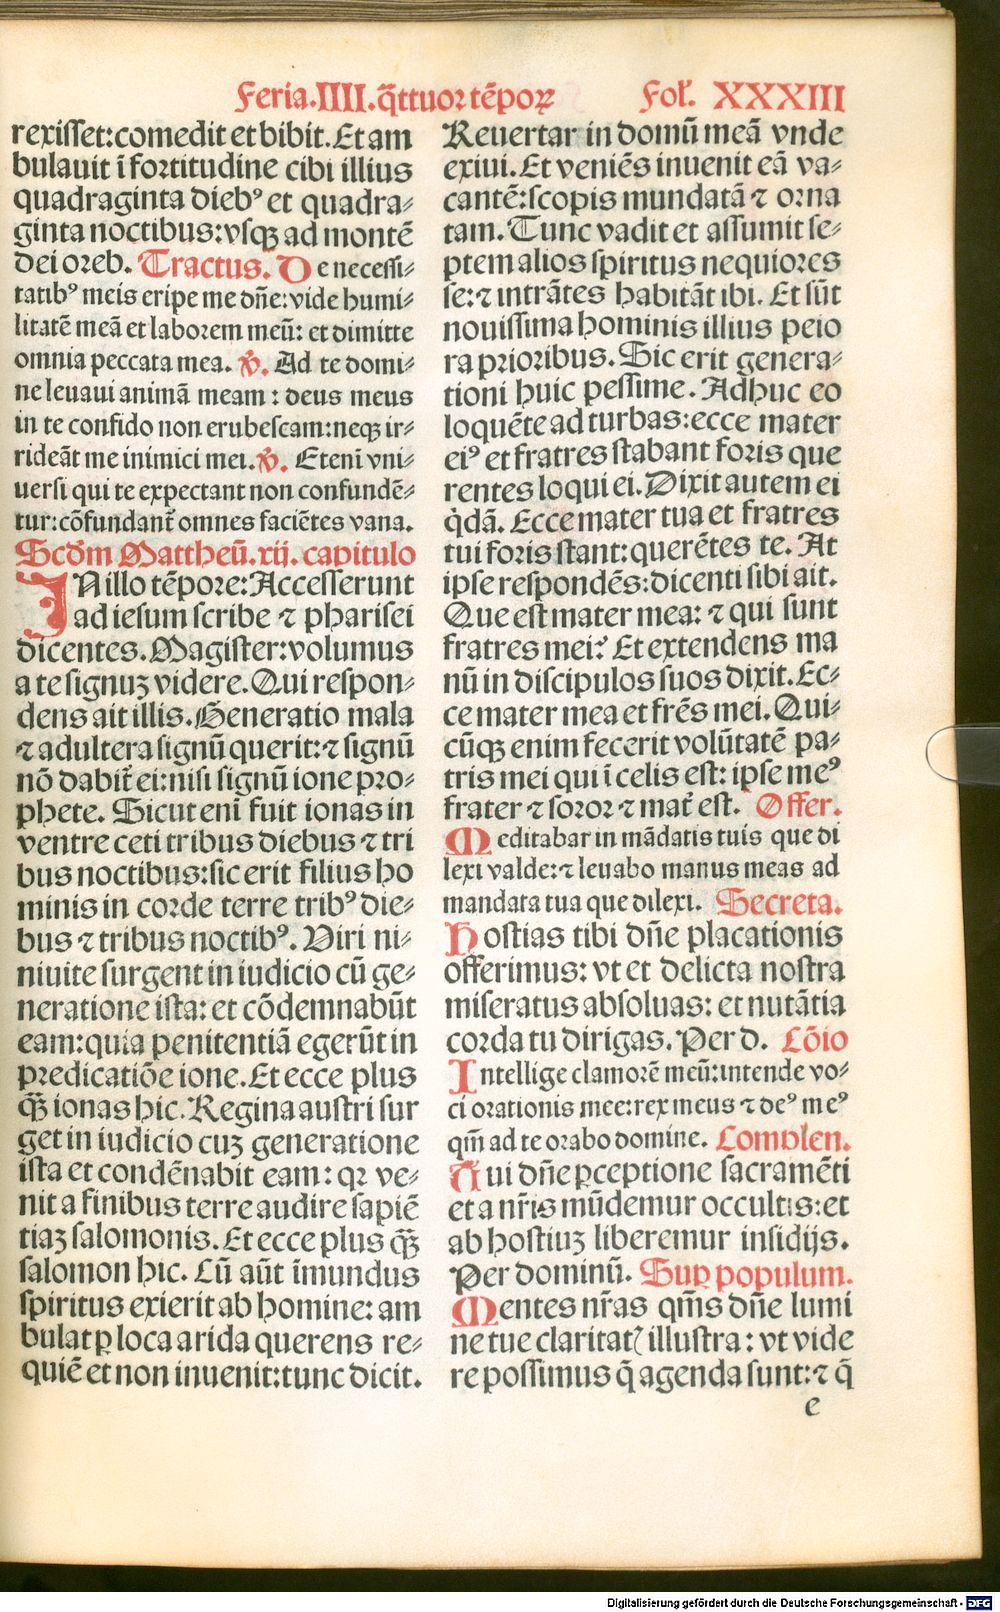 Feria.IIII.q̄ttuor tēpoꝝ Fol̕. XXXIII
rexisset:comedit et bibit. Et am
bulauit ī fortitudine cibi illius
quadraginta dieb⁹ et quadra⸗
ginta noctibus:vsqꝫ ad montē
dei oreb. Tractus. De necessi⸗
tatib⁹ meis eripe me dñe:vide humi⸗
litatē meā et laborem meū: et dimitte
omnia peccata mea. ℣. Ad te domi⸗
ne leuaui animā meam: deus meus
in te confido non erubescam:neqꝫ ir⸗
rideāt me inimici mei. ℣. Etenī vni⸗
uersi qui te expectant non confundē⸗
tur:cōfundanť omnes faciētes vana.
Scḋm Mattheū.xij. capitulo
IN illo tēpore: Accesserunt
ad iesum scribe ⁊ pharisei
dicentes. Magister:volumus
a te signuꝫ videre. Qui respon⸗
dens ait illis. Generatio mala
⁊ adultera signū querit:⁊ signū
nō dabiť ei:nisi signū ione pro⸗
phete. Sicut enī fuit ionas in
ventre ceti tribus diebus ⁊ tri
bus noctibus:sic erit filius ho
minis in corde terre trib⁹ die⸗
bus ⁊ tribus noctib⁹. Viri ni⸗
niuite surgent in iudicio cū ge⸗
neratione ista: et cōdemnabūt
eam:quia penitentiā egerūt in
predicatiōe ione. Et ecce plus
q̄ꝫ ionas hic. Regina austri sur
get in iudicio cuꝫ generatione
ista et condēnabit eam: qꝛ ve⸗
nit a finibus terre audire sapiē
tiaꝫ salomonis. Et ecce plus q̄ꝫ
salomon hic. Cū aūt īmundus
spiritus exierit ab homine: am
bulat ꝑ loca arida querens re⸗
quiē et non inuenit:tunc dicit.
Reuertar in domū meā vnde
exiui. Et veniēs inuenit eā va⸗
cantē:scopis mundatā ⁊ orna
tam. Tunc vadit et assumit se⸗
ptem alios spiritus nequiores
se:⁊ intrātes habitāt ibi. Et sūt
nouissima hominis illius peio
ra prioribus. Sic erit genera⸗
tioni huic pessime. Adhuc eo
loquēte ad turbas:ecce mater
ei⁹ et fratres stabant foris que
rentes loqui ei. Dixit autem ei
q̇dā. Ecce mater tua et fratres
tui foris stant:querētes te. At
ipse respondēs:dicenti sibi ait.
Que est mater mea: ⁊ qui sunt
fratres mei? Et extendens ma
nū in discipulos suos dixit. Ec⸗
ce mater mea et frēs mei. Qui⸗
cūqꝫ enim fecerit volūtatē pa⸗
tris mei qui ī celis est: ipse me⁹
frater ⁊ soror ⁊ mať est. Offer.
Meditabar in mādatis tuis que di
lexi valde:⁊ leuabo manus meas ad
mandata tua que dilexi. Secreta.
Hostias tibi dñe placationis
offerimus: vt et delicta nostra
miseratus absoluas: et nutātia
corda tu dirigas. Per d. Cōio
Intellige clamorē meū:intende vo⸗
ci orationis mee:rex meus ⁊ de⁹ me⁹
qm̄ ad te orabo domine. Complen.
Aui dñe ꝑceptione sacramēti
et a nr̄is mūdemur occultis:et
ab hostiuꝫ liberemur insidijs.
Per dominū. Suꝑ populum.
Mentes nr̄as qm̄s dñe lumi
ne tue claritatꝭ illustra: vt vide
re possimus q̄ agenda sunt:⁊ q̄
e
Digitalisierung gefördert durch die Deutsche Forschungsgemeinschaft - DFG